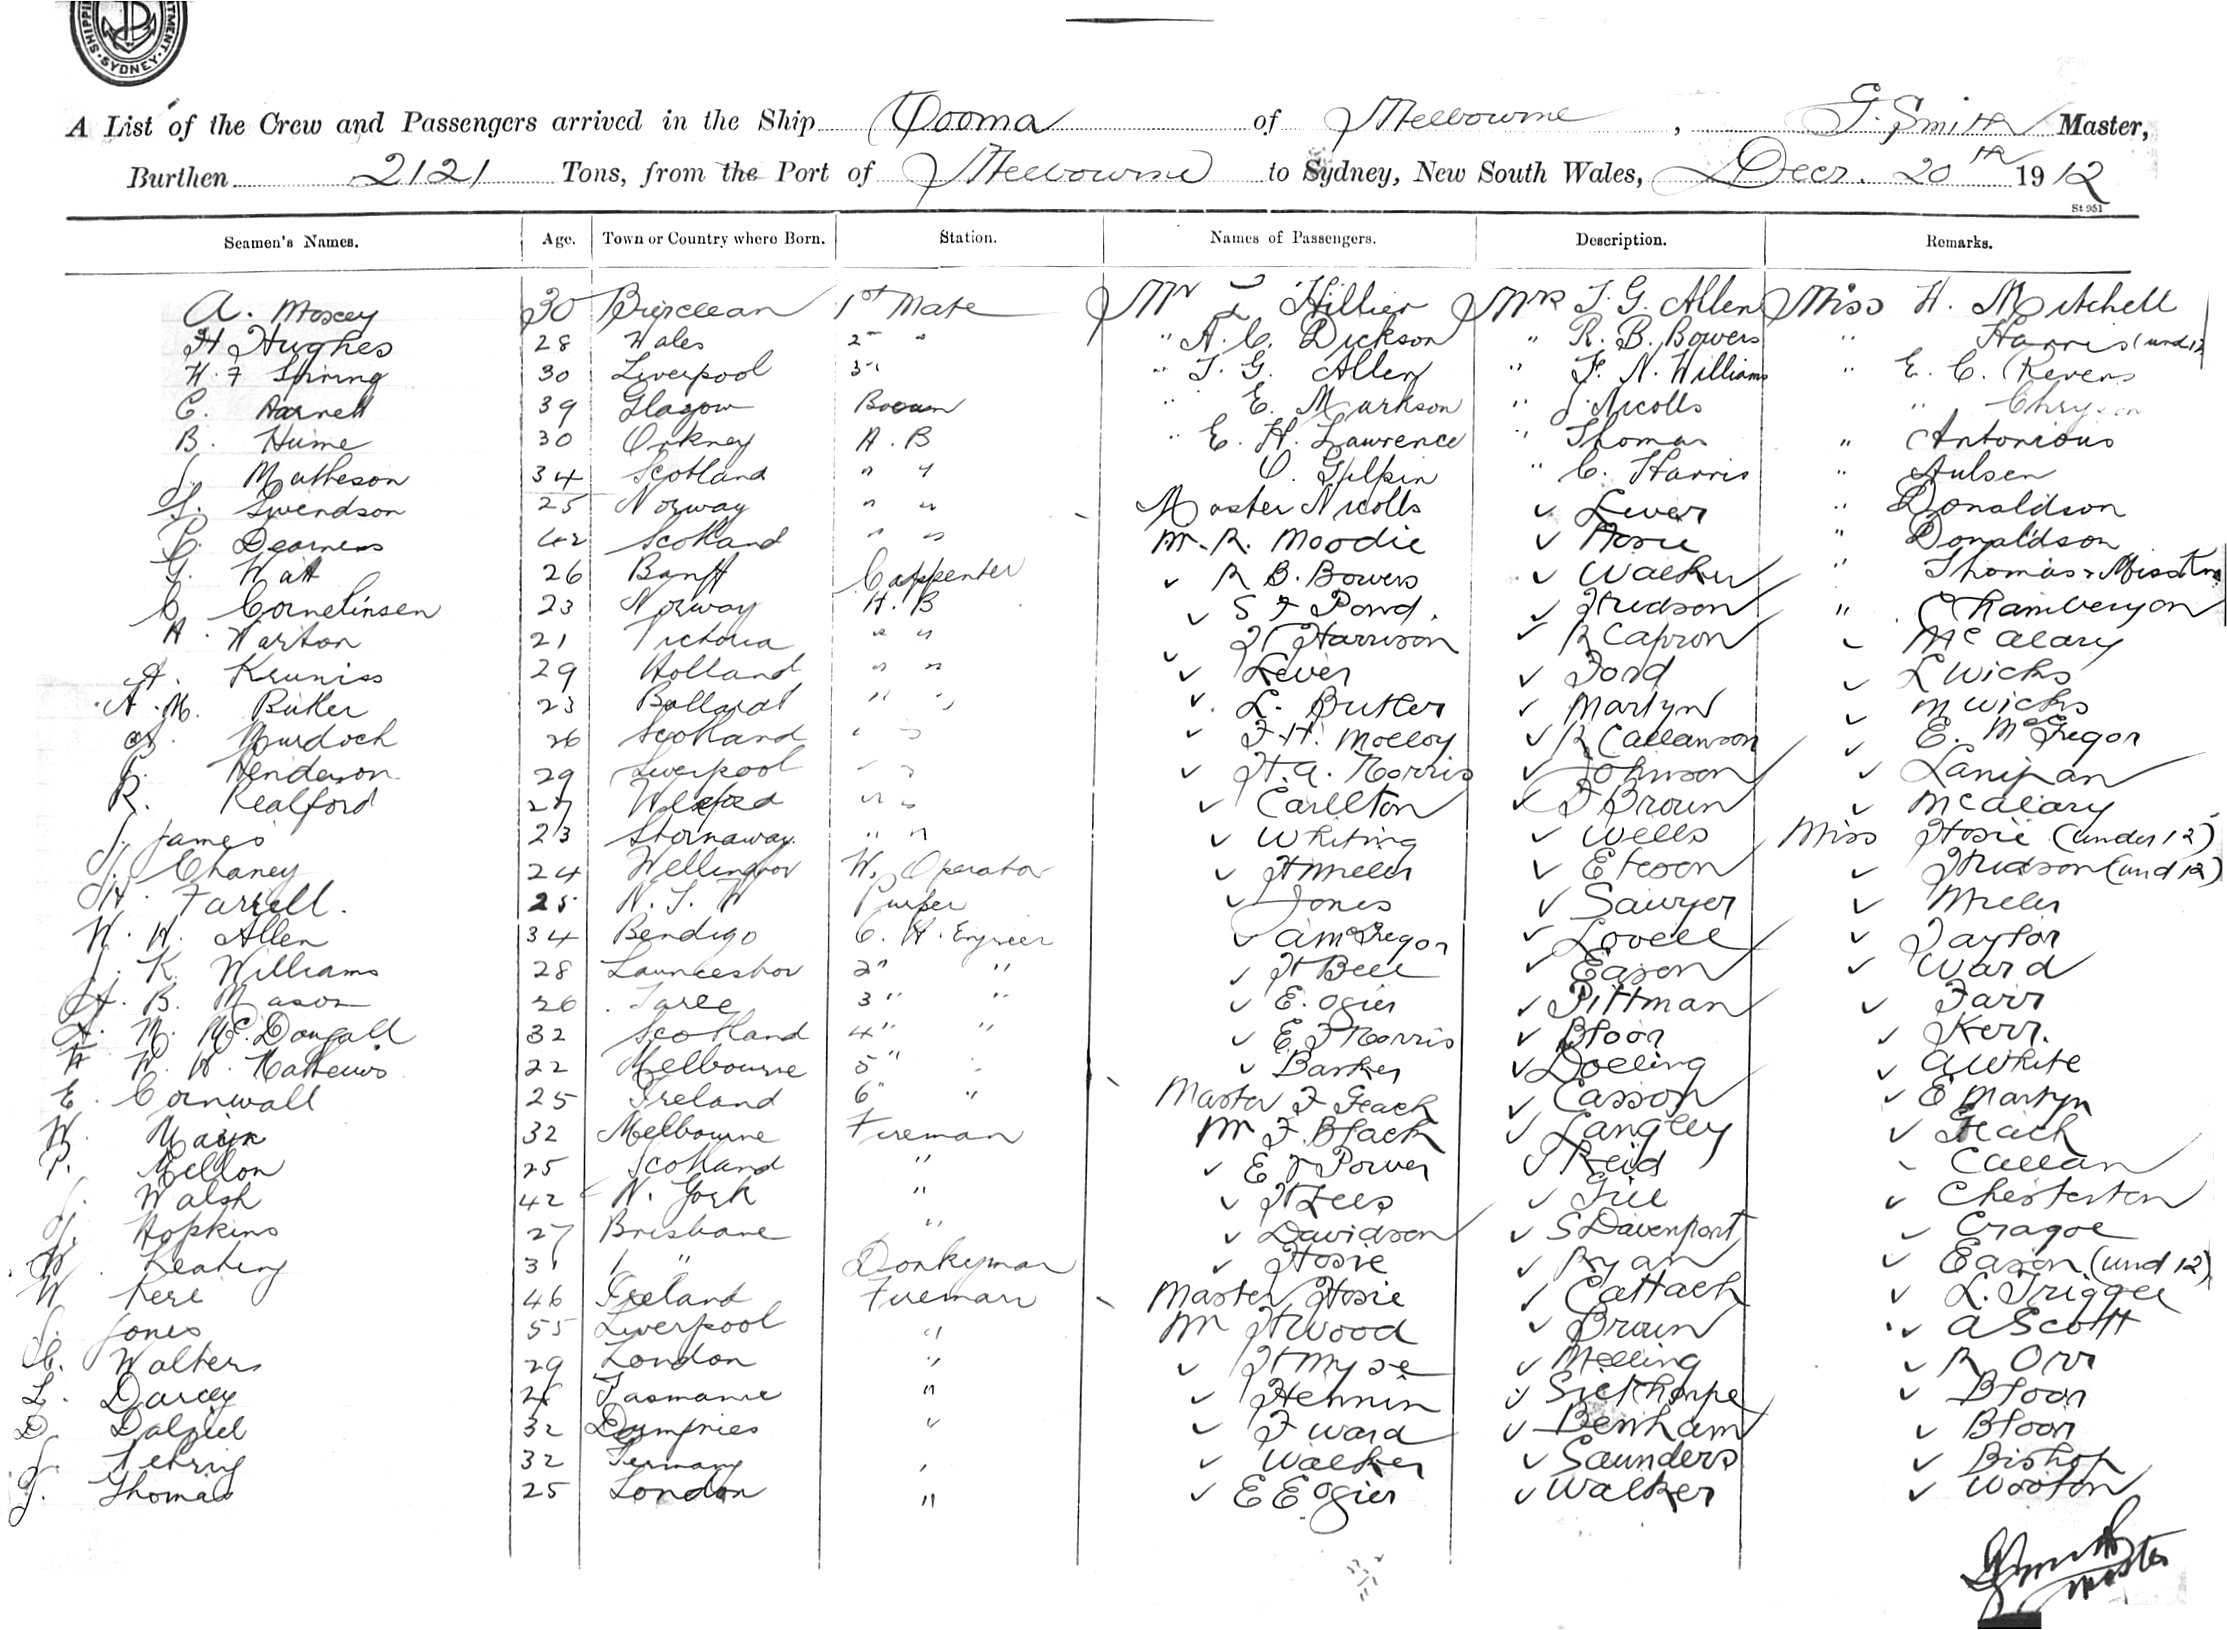 SHIPPI
TMENT
SYDNEY
A List of the Crew and Passengers arrived in the Ship Cooma of Melbourne, G. Smith Master,
Burthen 2121 Tons, from the Port of Melbourne to Sydney, New South Wales, Decr. 20th 1912
St 951
Seamen's Names. Age. Town or Country where Born. Station. Names of Passengers. Description. Remarks.
A. Moxey 30 1st Mate Mr Hillier Mrs T. G. Allen Miss H. Mitchell
H Hughes 28 Wales 2nd " " A. C. Dickson " R. B. Bowers " Harris (und 12
H. F Spring 30 Liverpool 3rd " T. G. Allen " F. N. Williams " E. C. Revers
C. 39 Glasgow Bosun " E. Markson " J Nicolls "
B. Hume 30 Orkney A. B " E. H. Lawrence " Thomas " Antonious
J. Matheson 34 Scotland " " O. Gilpin " C. Harris " Aulsen
S. Swendson 25 Norway " " Master Nicolls ✓ Lever " Donaldson
C. Dearness 42 Scotland " " Mr. R. Moodie ✓ Hosie " Donaldson
G. Watt 26 Banff Carpenter ✓ R B. Bowers ✓ Walker " Thomas & Miss
C. Cornelinsen 23 Norway A. B ✓ S F Pond. ✓ Hudson "
A. Warton 21 Victoria " " ✓ H Harrison ✓ R Capron ✓ McAlary
A. Kruniss 29 Holland " " ✓ Lever ✓ Ford ✓ L Wicks
A. M. Butler 23 Ballarat " " ✓ L. Butler ✓ Martyn ✓ M Wicks
Murdoch 26 Scotland " " ✓ F. H. Molloy ✓ R Callawson ✓ E. McGregor
G. Henderson 29 Liverpool " " ✓ H. A. Norris ✓ Johnson ✓ Lanigan
R. Realford 27 " " ✓ Carllton ✓ D Brown ✓ McAlary
J. James 23 Stornaway. " " ✓ Whiting ✓ Wells Miss Hosie (under 12)
J. Chaney 24 Wellington W. Operator ✓ H Miller ✓ Eteson ✓ Hudson (und 12)
H. Farrell. 25 N. S. W Purser ✓ Jones ✓ Sawyer ✓ Miller
W. H. Allen 34 Bendigo C. H. Engineer ✓ A McGregor ✓ Lovell ✓ Taylor
J. K. Williams 28 Launceston 2" " ✓ H Bell ✓ Eason ✓ Ward
H. B. Mason 26 Taree 3" " ✓ E. Ogier ✓ Pittman ✓ Farr
A. M. McDougall 32 Scotland 4" " ✓ E F Norris ✓ Bloor ✓ Kerr.
H W. H. Mathews 22 Melbourne 5" " ✓ Barker ✓ Doeling ✓ A White
E. Cornwall 25 Ireland 6" " Master F Geach ✓ Casson ✓ E Martyn
W. 32 Melbourne Fireman Mr F. Black ✓ Langley ✓ Geach
P. Mellon 25 Scotland " ✓ E J Power ✓ Reid ✓ Callan
J. Walsh 42 N. York " ✓ H Lees ✓ Gill ✓ Chesterton
J. Hopkins 27 Brisbane " ✓ Davidson ✓ S Davenport ✓ Cragoe
W. Keating 31 " Donkeyman ✓ Hosie ✓ Ryan ✓ Eason (und 12)
W 46 Ireland Fireman Master Hosie ✓ Cattach ✓ L. Trigge
J. Jones 55 Liverpool " Mr H Wood ✓ Brown ✓ A Scott
C. Walters 29 London " ✓ H Myse ✓ Melling ✓ R Orr
L. Darcey 26 Tasmania " ✓ Hennin ✓ Sickthorpe ✓ Bloor
D. Dalziel 32 Dumfries " ✓ F Ward ✓ Benham ✓ Bloor
J. 32 Germany " ✓ Walker ✓ Saunders ✓ Bishop
J. Thomas 25 London " ✓ E E Ogier ✓ Walker ✓ Wooton
G Smith
Master